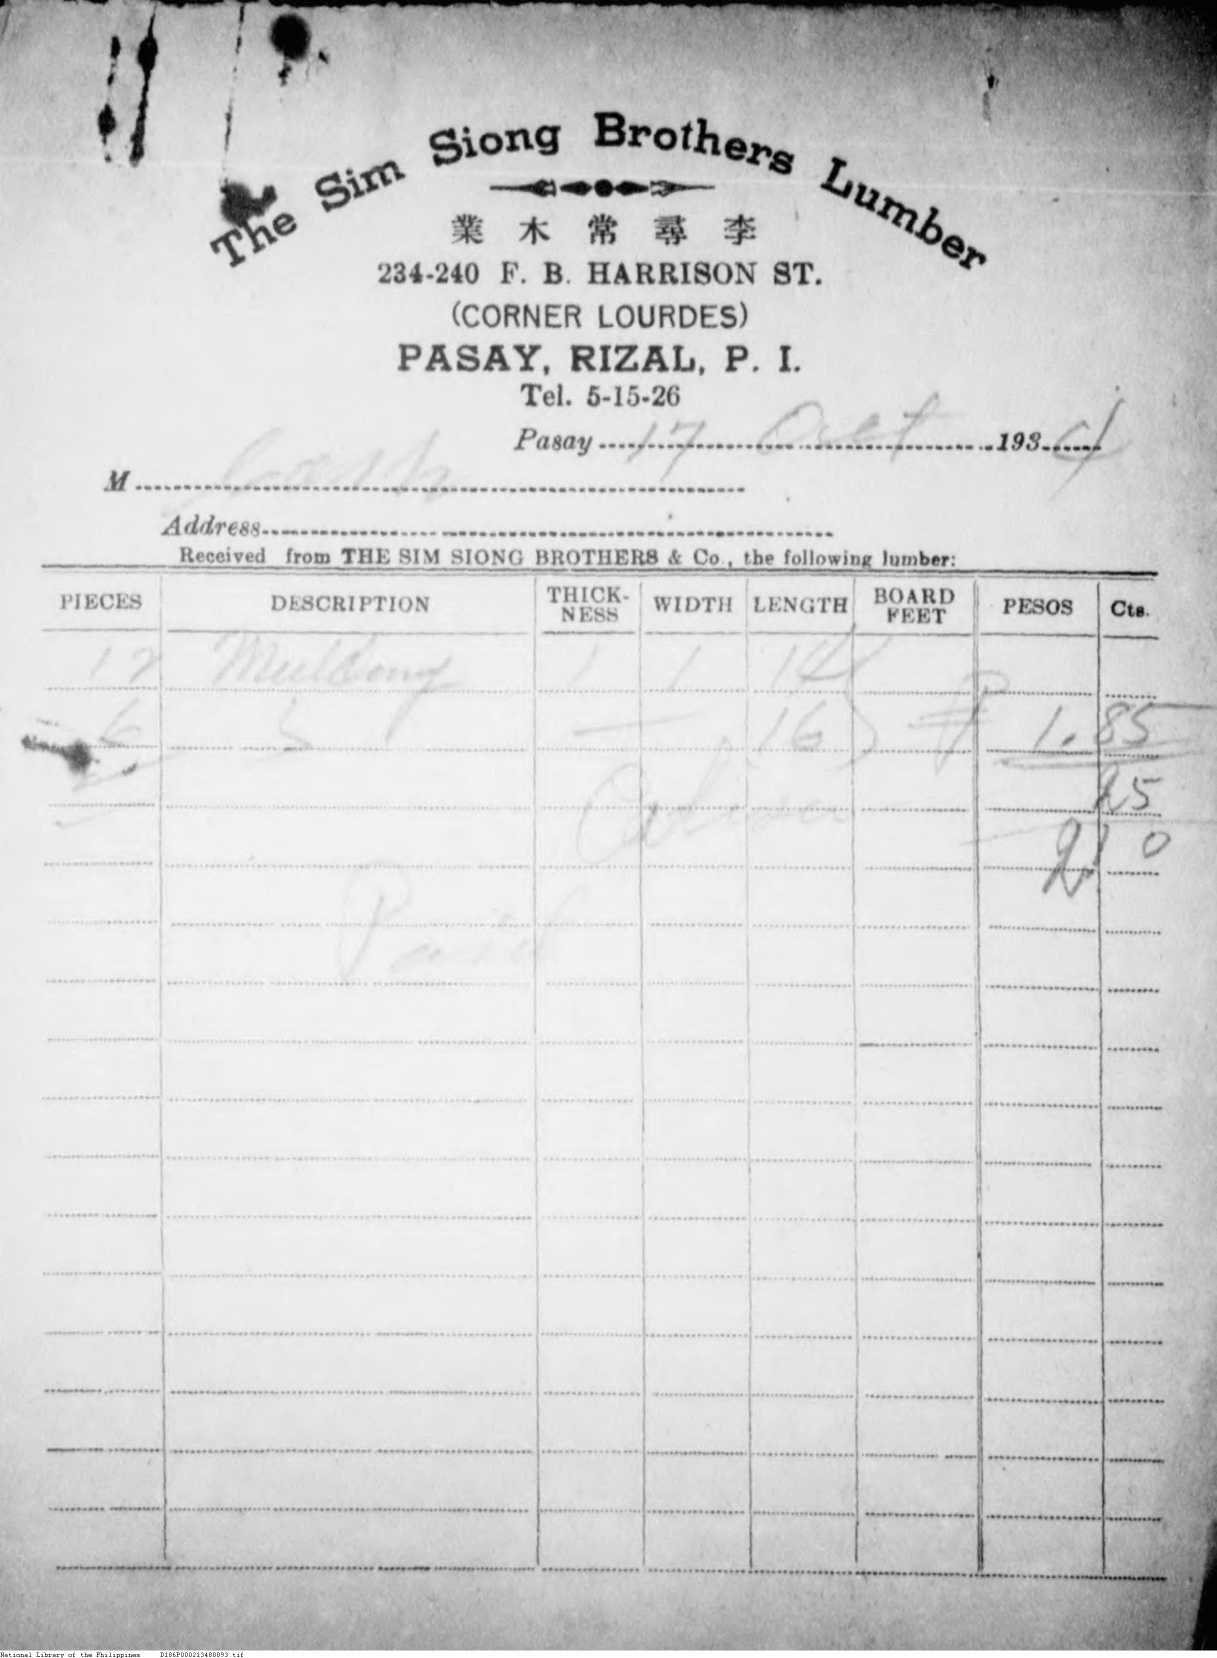 The Sim Siong Brothers Lumber
業木常尋李
234-240 F. B. HARRISON ST.
(CORNER LOURDES)
PASAY, RIZAL, P. I.
Tel. 5-15-26
Pasay 17 Oct 1934
M Cash
Address
Received from THE SIM SIONG BROTHERS & Co., the following lumber:
PIECES DESCRIPTION THICK-NESS WIDTH LENGTH BOARD FEET PESOS Cts.
12 1 1 14
6 16 ₱ 1.85
25
2 10
Paid
National Library of the Philippines D186P000213488893.tif